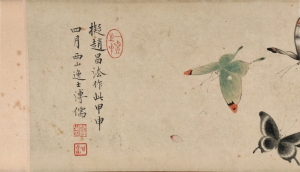 擬趙昌法作此甲申
四月西山逸士溥儒